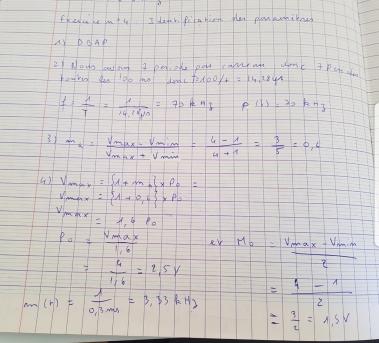 Exercice n°4. Identification des paramètres
1) DBAP
2) Nous avons 7 période par carreau donc 7 Périodes
toutes les 100 ms donc T=100/7 = 14,28 µs
f = 1/T = 1/14,28 µs = 70 kHz p(t) = 70 kHz
3) m = Vmax - Vmin / Vmax + Vmin = 4-1 / 4+1 = 3/5 = 0,6
4) Vmax = (1+m) x P0 =
Vmax = (1+0,6) x P0
Vmax = 1,6 P0
P0 = Vmax / 1,6 et M0 = Vmax - Vmin / 2
= 4 / 1,6 = 2,5V = 4 - 1 / 2
m(t) = 1 / 0,3ms = 3,33 kHz = 3/2 = 1,5V